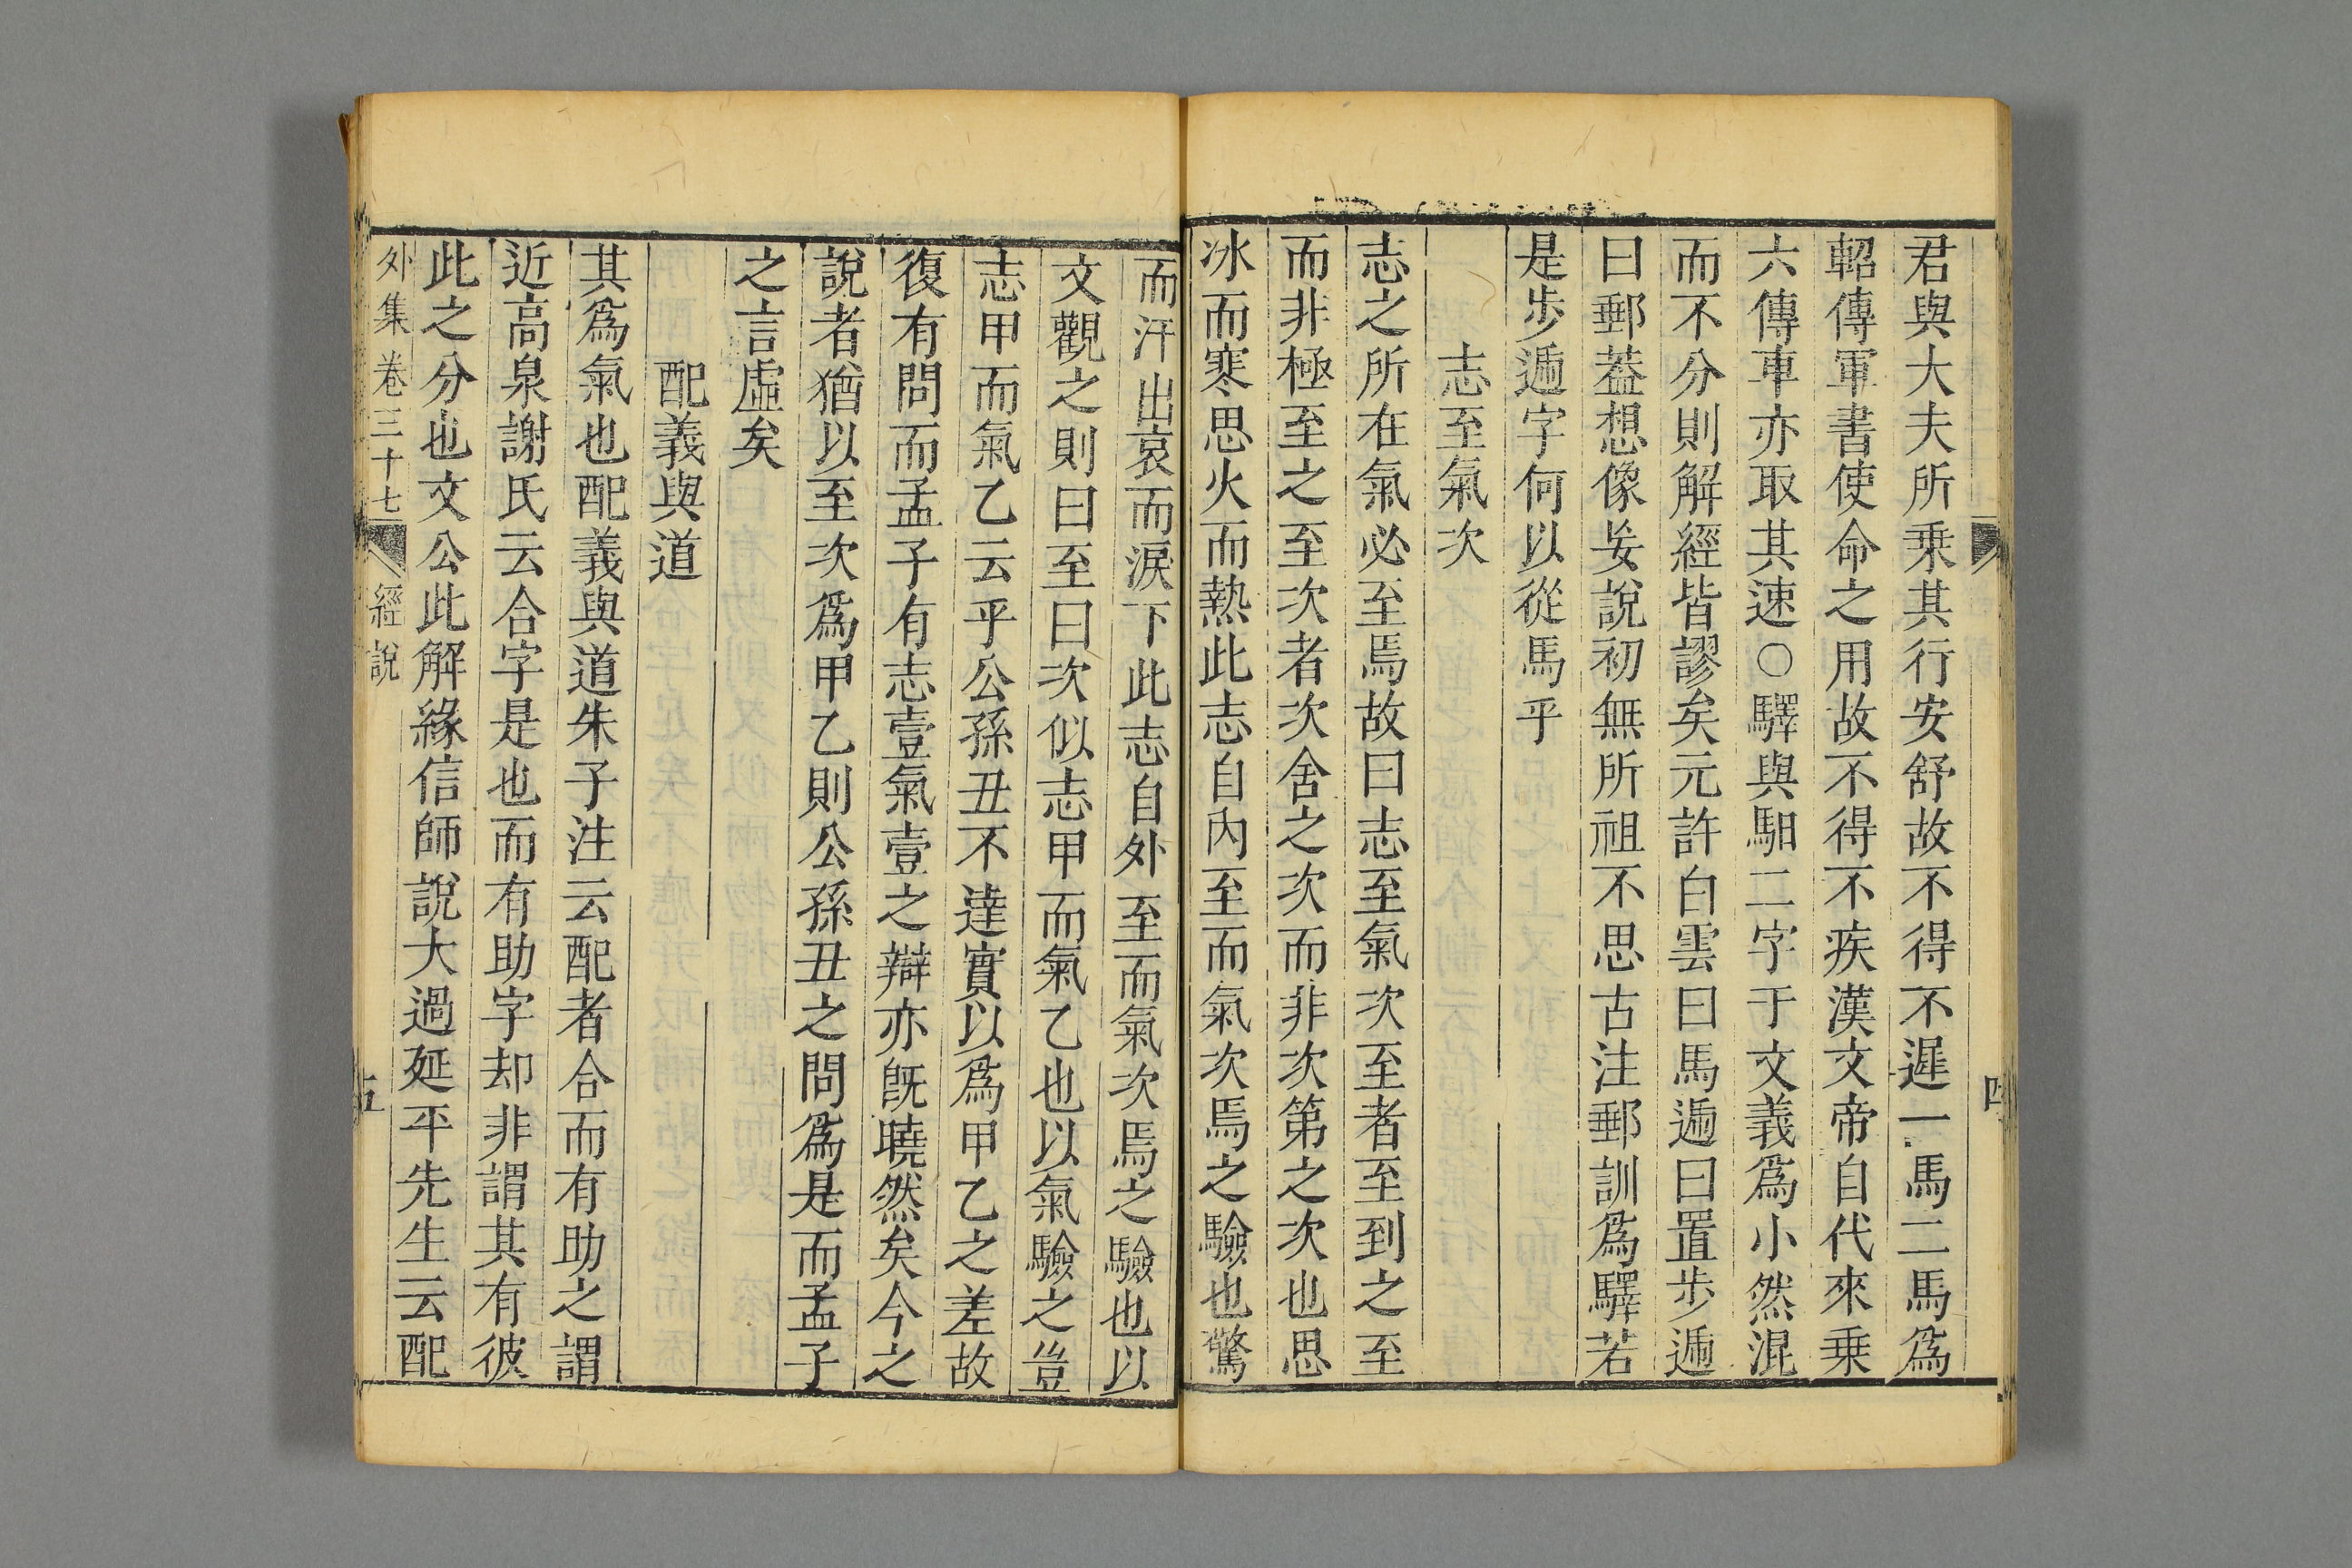 君與大夫所乗其行安舒故不得不遲一馬二馬爲
軺傳軍書使命之用故不得不疾漢文帝自代來乗
六傳車亦取其速○驛與馹二字于文義爲小然混
而不分則解經皆謬矣元許白雲曰馬遞曰置步遞
曰郵葢想像妄說初無所祖不思古注郵訓爲驛若
是步遞字何以從馬乎
志至氣次
志之所在氣必至焉故曰志至氣次至者至到之至
而非極至之至次者次舍之次而非次第之次也思
冰而寒思火而熱此志自內至而氣次焉之驗也驚
而汗出哀而淚下此志自外至而氣次焉之驗也以
文觀之則曰至曰次似志甲而氣乙也以氣驗之豈
志甲而氣乙云乎公孫丑不達實以爲甲乙之差故
復有問而孟子有志壹氣壹之辯亦旣曉然矣今之
說者猶以至次爲甲乙則公孫丑之問爲是而孟子
之言虛矣
配義與道
其爲氣也配義與道朱子注云配者合而有助之謂
近高泉謝氏云合字是也而有助字却非謂其有彼
此之分也文公此解緣信師說大過延平先生云配
外集 卷三十七 經說